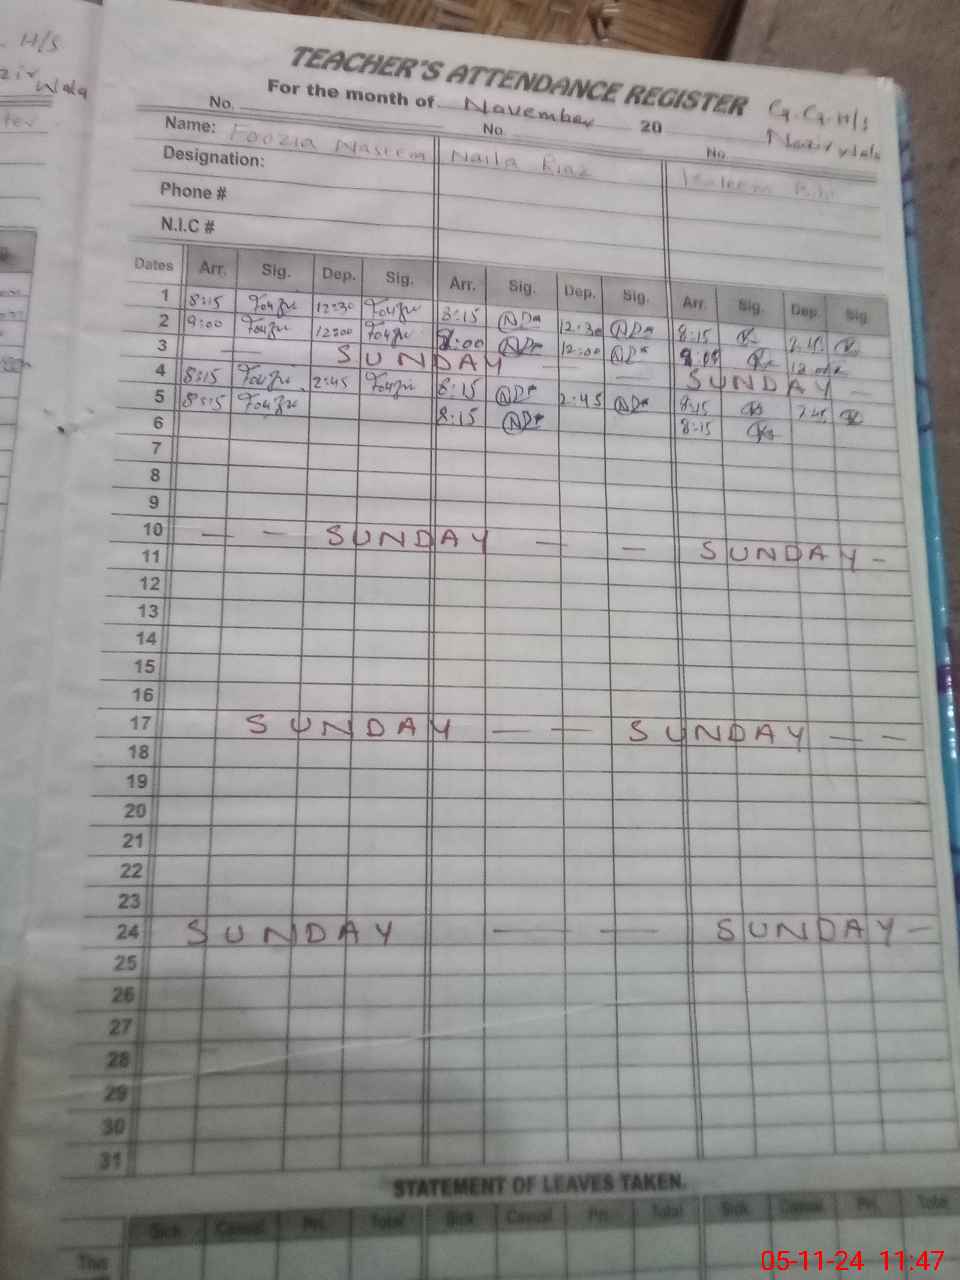 H/S
Wala
TEACHER'S ATTENDANCE REGISTER G.G.H/S
For the month of November 20 Nazir wala
No. No. No.
Name: Foozia Naseem Naila Riaz
Designation:
Phone #
N.I.C #
Dates Arr. Sig. Dep. Sig. Arr. Sig. Dep. Sig. Arr. Sig. Dep. Sig
1 8:15 12:30 8:15 12:30 8:15
2 9:00 12:00 9:00 12:00
3 — SUNDAY — — SUNDAY —
4 8:15 2:45 8:15 2:45 8:15 2:45
5 8:15 8:15 8:15
6
7
8
9
10 — — SUNDAY — — SUNDAY -
11
12
13
14
15
16
17 SUNDAY — — SUNDAY — —
18
19
20
21
22
23
24 SUNDAY — — — SUNDAY —
25
26
27
28
29
30
31
STATEMENT OF LEAVES TAKEN.
Sick Casual Pri. Total Sick Casual Pri. Total Sick Casual Pri. Total
This
05-11-24 11:47